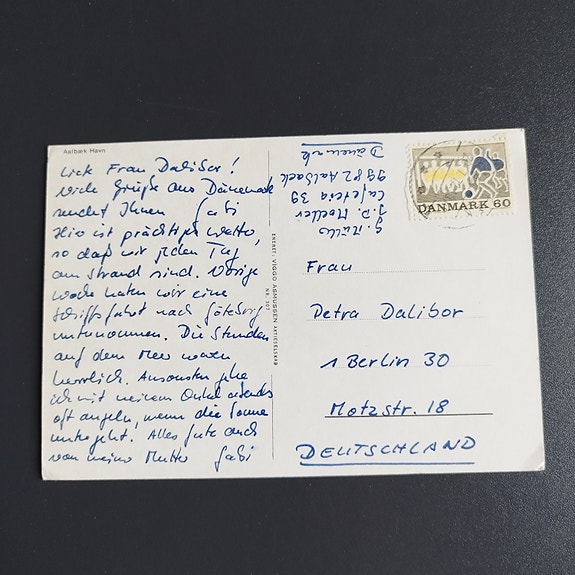 Aalbæk Havn
Liebe Frau Dalibor!
Viele Grüße aus Dänemark
sendet Ihnen Gabi
Hier ist prächtiges Wetter,
so daß wir jeden Tag
am Strand sind. Vorige
Woche haben wir eine
Schiffsfahrt nach Göteborg
unternommen. Die Stunden
auf dem Meer waren
herrlich. Ansonsten gehe
ich mit meinem Onkel abends
oft angeln, wenn die Sonne
untergeht. Alles Gute auch
von meiner Mutter Gabi
ENERET: VIGGO ASMUSSEN AKTIESELSKAB
NR. 307
G.
J.P. Møller
Cafeteria 39
9982 Aalbaek
Dänemark
DANMARK 60
Frau
Petra Dalibor
1 Berlin 30
Motzstr. 18
DEUTSCHLAND